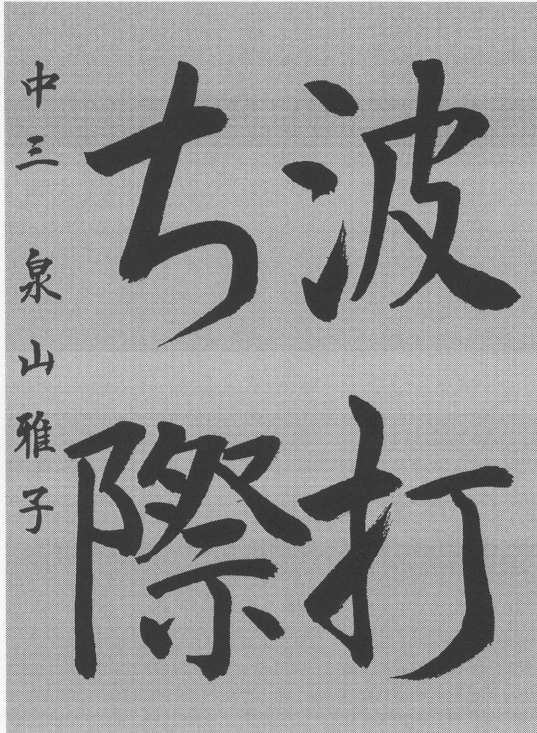 波打
ち際
中三 泉山雅子